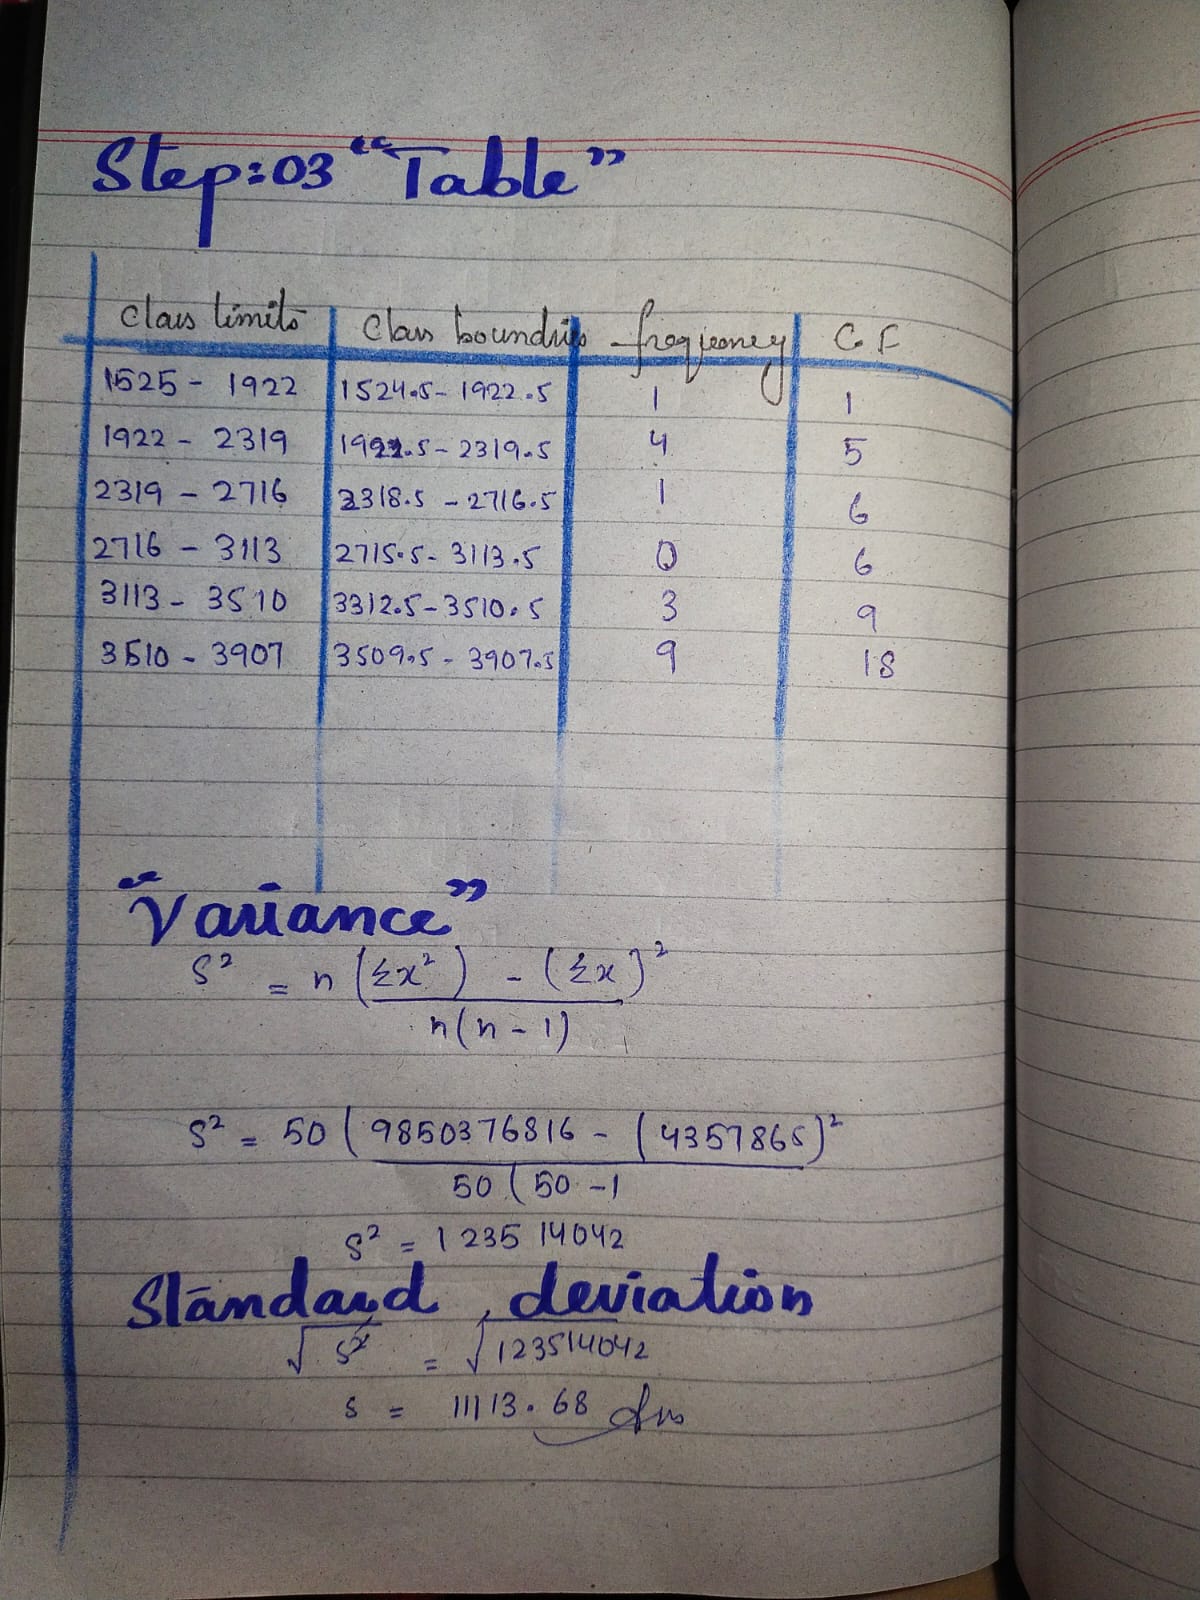 Step:03 "Table"
Class limits Class boundris frequency C.F
1525 - 1922 1524.5- 1922.5 1 1
1922 - 2319 1921.5- 2319.5 4 5
2319 - 2716 2318.5 - 2716.5 1 6
2716 - 3113 2715.5- 3113.5 0 6
3113- 3510 3312.5-3510.5 3 9
3510 - 3907 3509.5 - 3907.5 9 18
"Variance"
S² = n (Σx²) - (Σx)²
n(n-1)
S² = 50 ( 9850376816 - (4357865)²
50 ( 50 -1
S² = 1235 14042
Standard deviation
√S² = √123514042
s = 11113.68 Ans